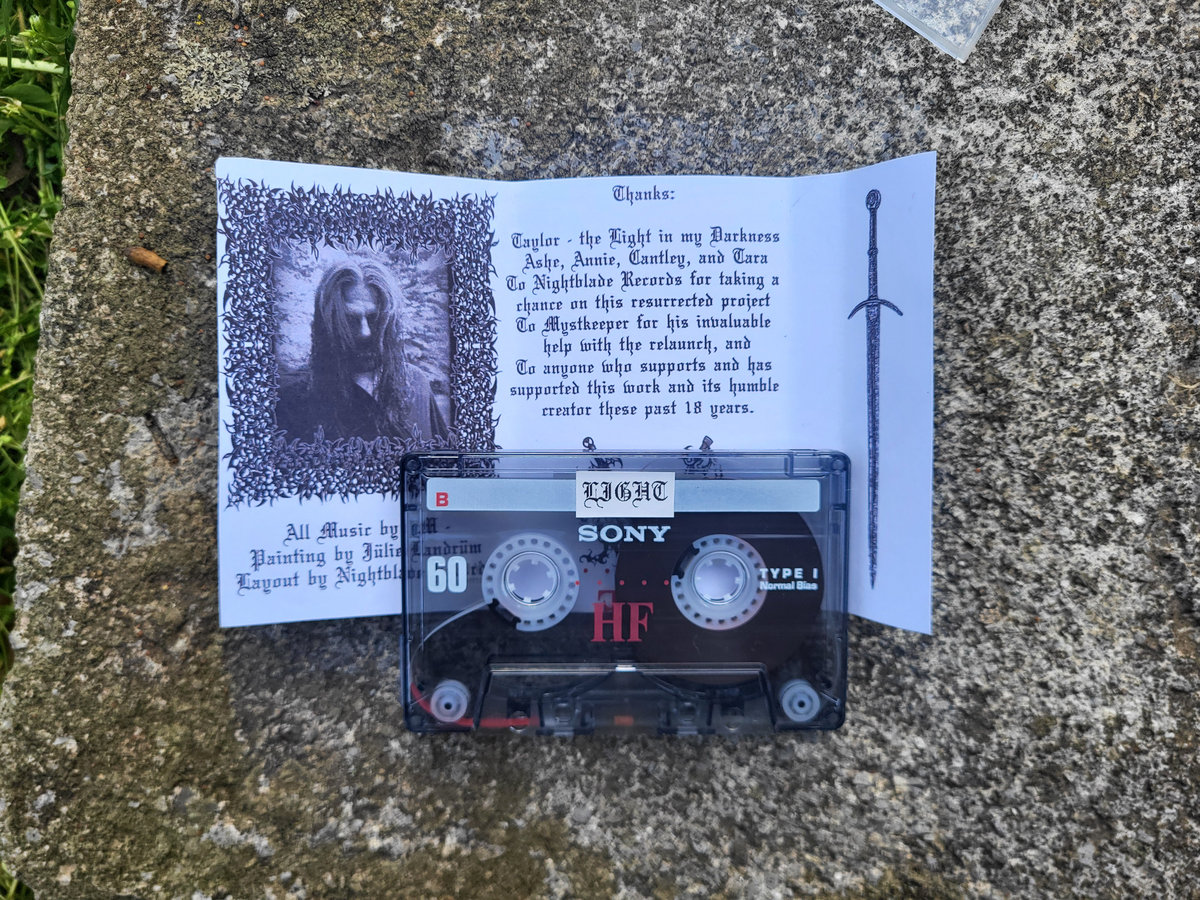 Thanks:
Taylor - the Light in my Darkness
Ashe, Annie, Cantley, and Tara
To Nightblade Records for taking a
chance on this resurrected project
To Mystkeeper for his invaluable
help with the relaunch, and
To anyone who supports and has
supported this work and its humble
creator these past 18 years.
All Music by
Painting by Jülie Landrüm
Layout by Nightblade
B
LIGHT
SONY
60
TYPE I
Normal Bias
HF